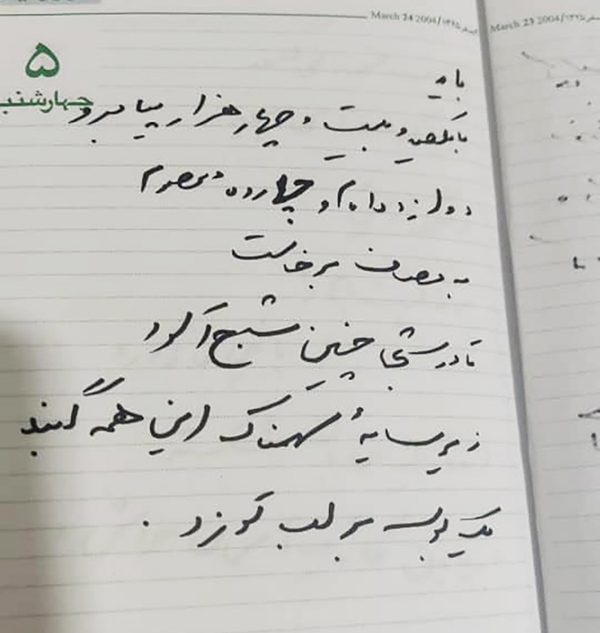 March 24 2004/۱۳۸۲ اسفند
March 23 2004/۱۳۸۲ اسفند
۵
چهارشنبه
باید
با یکصد و بیست و چهار هزار پیامبر و
دوازده امام و چهارده معصوم
به مصاف برخاست
تا در شبی چنین شبح آلود
زیر سایهٔ سهمناک این همه گنبد
یک بوسه بر لب تو زد .